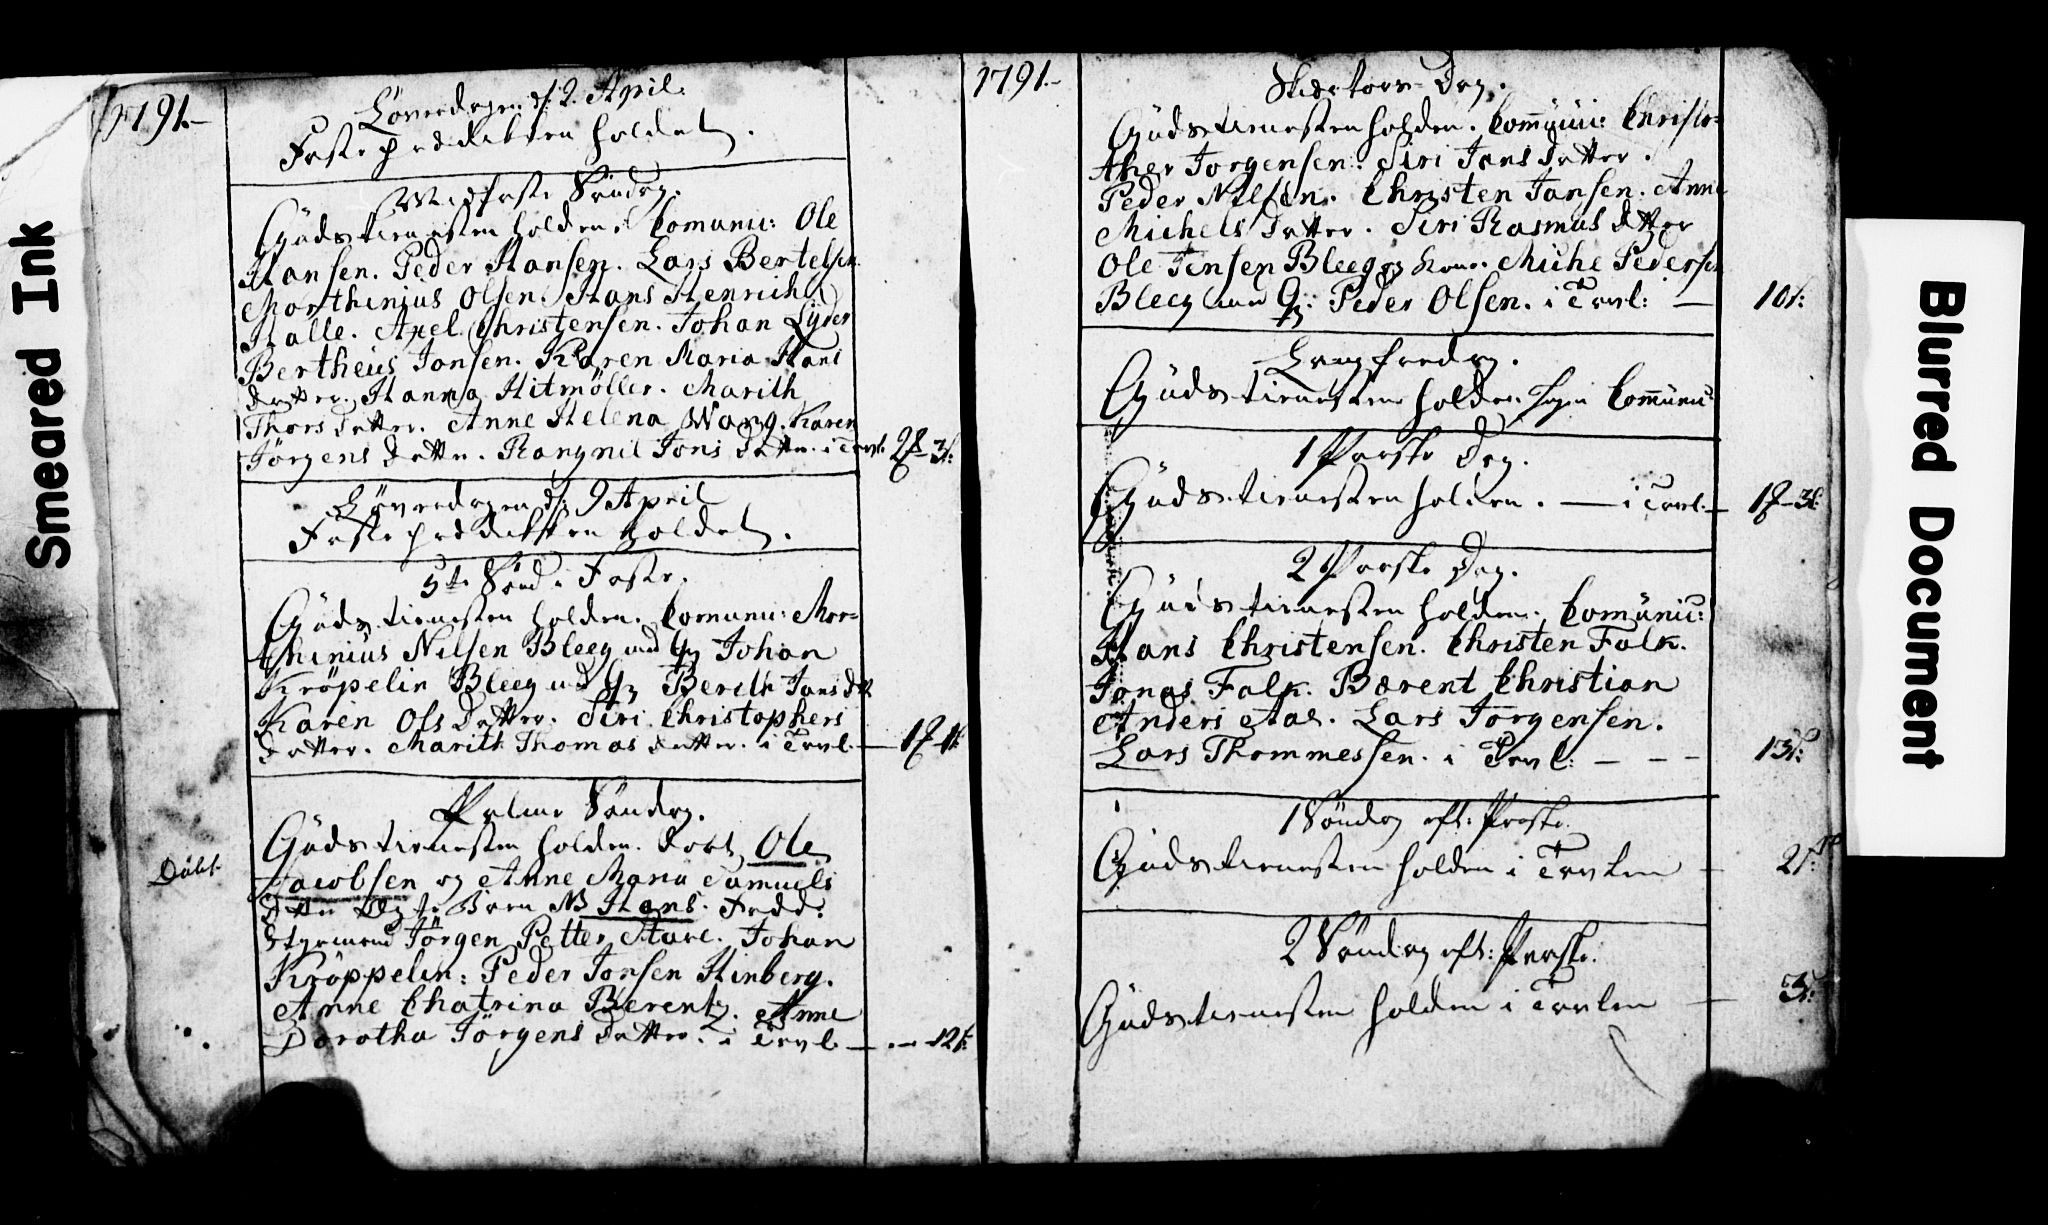 Smeared Ink
1791.-
Löverdagen d: 2 April.
Faste prædikken holdet.
Midfaste Söndag.
Gudstienesten holden. Comunic: Ole
Hansen. Peder Hansen. Lars Bertelsen
Morthinius Olsen. Hans Henrich
Halle. Axel Christensen. Johan Lyder
Bertheus Jonsen. Karen Maria Hans
datter. Hanna Hitmöller. Marith
Thorsdatter. Anne Helena Wang. Karen
Jörgens datter. Rangnil Jons datter. i Tavl. 2 3
Löverdagen d: 9 April
Faste prædikken holdet.
5te Sönd. i Faste.
Gudstienesten holden. Comunic: Mor-
thinius Nilsen Bleeg med Johan
Kröpelin Bleeg med Berith Jansdt
Karen Olsdatter. Siri Christophers
datter. Marith Thomas datter. i Tavl. — 1 1
Palme Söndag.
Gudstienesten holden. döbt Ole
Döbt.
Jacobsen og Anne Maria Samuels
datter ægte Barn NB Hans. Fadd:
Styrmand Jörgen Petter Stare. Johan
Kröppelin: Peder Jonsen Hinberg.
Anne Chatrina Berentz. Anne
Dorotha Jörgens datter. i Tavl — 12
1791.-
Skiertors-Dag.
Gudstienesten holden. Communi: Christo-
pher Jorgensen. Siri Jons datter.
Peder Nilsen. Christen Jansen. Anne
Michels datter. Siri Rasmus datter
Ole Jensen Bleeg og kone. Miche Pedersen
Bleeg med Peder Olsen. i Tavl: — 10
Langfredag.
Gudstienesten holden. Ingen Communic:
1 Paaske Dag.
Gudstienesten holden. — i Tavl. — 1 3
2 Paaske Dag.
Gudstienesten holden. Comunic:
Hans Christensen. Christen Falk.
Jonas Falk. Barent Christian
Anders Aas. Lars Jorgensen.
Lars Thommessen. i Tavl: - - - 13
1 Söndag eft: Paaske.
Gudstienesten holden i Tavlen - 2
2 Söndag eft: Paaske.
Gudstienesten holden i Tavlen — 3
Blurred Document